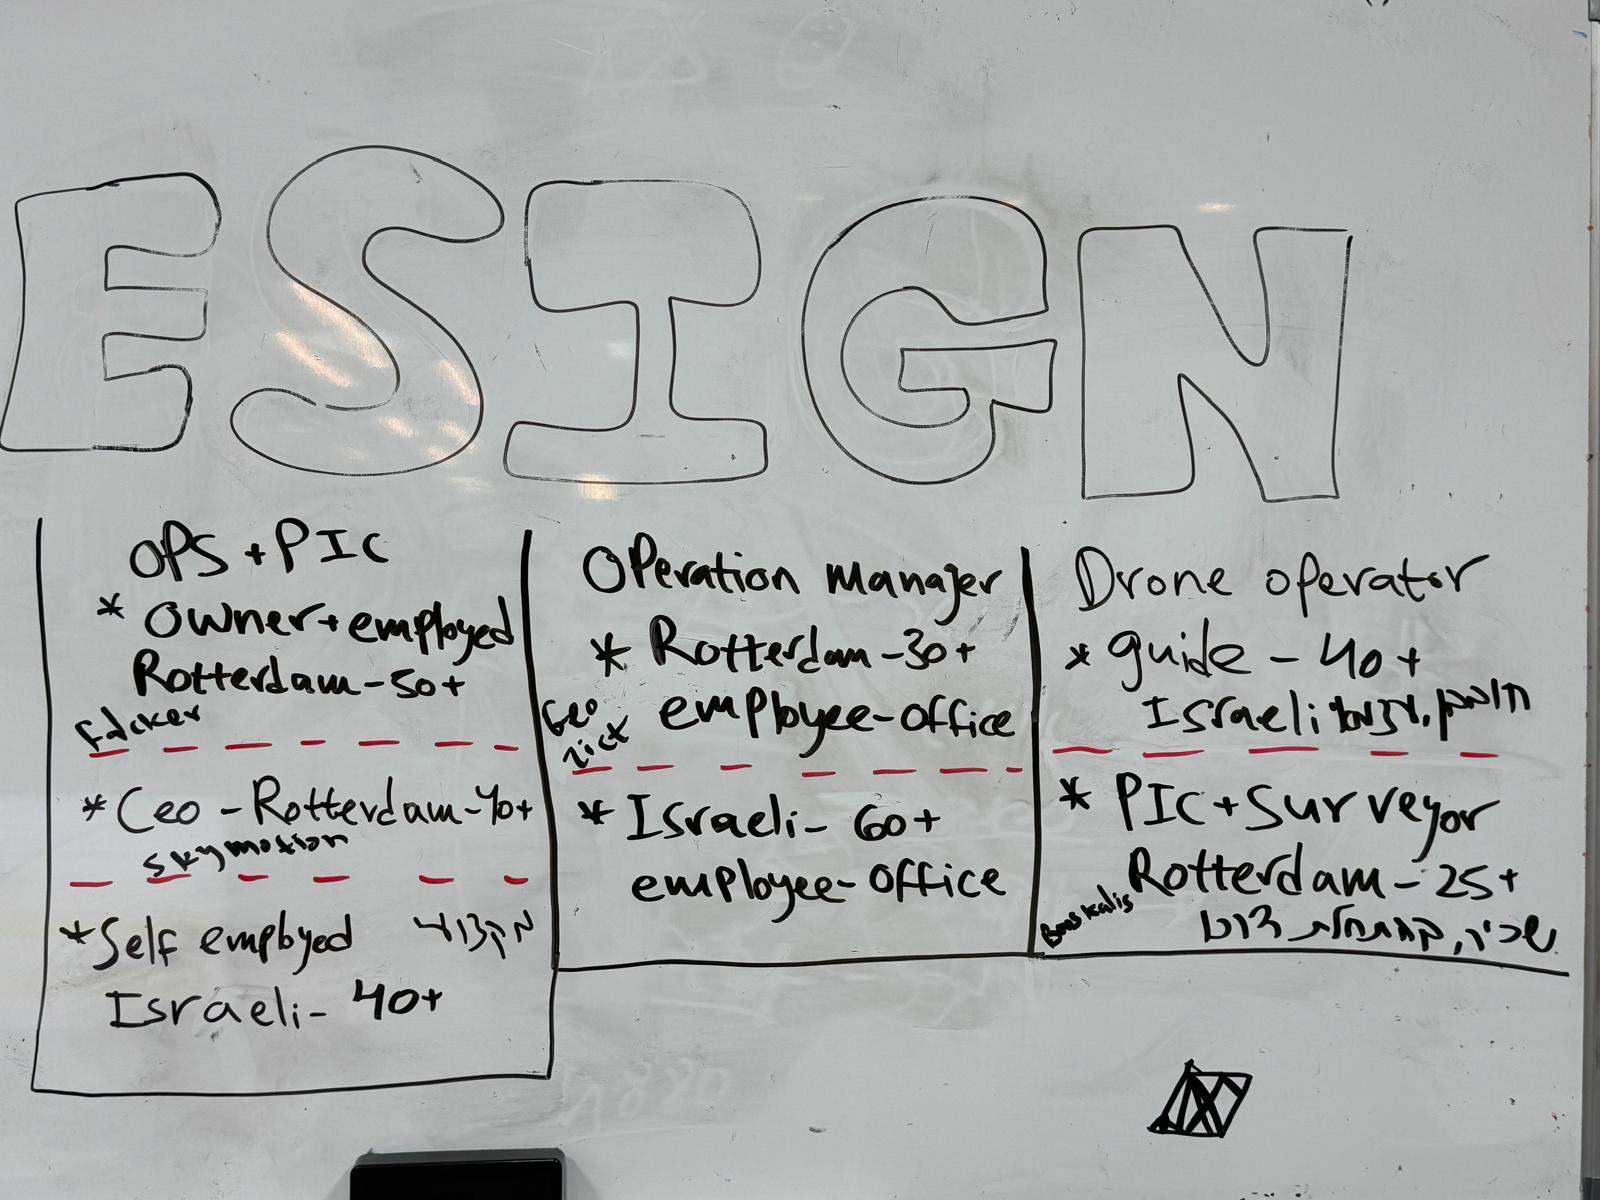 ESIGN
OPS + PIC
* Owner + employed
Rotterdam - 50+
* Ceo - Rotterdam - 40+
skymotion
* Self employed
Israeli - 40+
Operation manager
* Rotterdam - 30+
employee - office
Geo
* Israeli - 60+
employee - office
Drone operator
* guide - 40+
Israeli
* PIC + Surveyor
Rotterdam - 25+
Boskalis
שכיר,